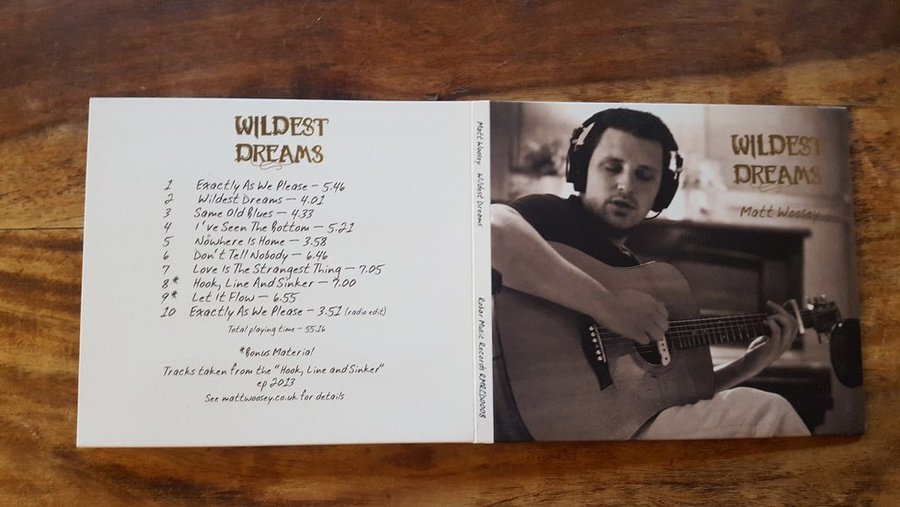 WILDEST
DREAMS
1 Exactly As We Please – 5.46
2 Wildest Dreams – 4.01
3 Same Old Blues – 4.33
4 I've Seen The Bottom – 5.21
5 Nowhere Is Home – 3.58
6 Don't Tell Nobody – 6.46
7 Love Is The Strangest Thing – 7.05
8* Hook, Line And Sinker – 7.00
9* Let It Flow – 6.55
10 Exactly As We Please – 3.51 (radio edit)
Total playing time – 55.16
*Bonus Material
Tracks taken from the "Hook, Line and Sinker"
ep 2013
See mattwoosey.co.uk for details
Matt Woosey Wildest Dreams Robar Music Records RMRCD0008
WILDEST
DREAMS
Matt Woosey